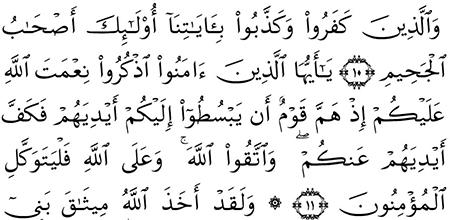 وَٱلَّذِينَ كَفَرُوا۟ وَكَذَّبُوا۟ بِـَٔايَـٰتِنَآ أُو۟لَـٰٓئِكَ أَصْحَـٰبُ
ٱلْجَحِيمِ ١٠ يَـٰٓأَيُّهَا ٱلَّذِينَ ءَامَنُوا۟ ٱذْكُرُوا۟ نِعْمَتَ ٱللَّهِ
عَلَيْكُمْ إِذْ هَمَّ قَوْمٌ أَن يَبْسُطُوٓا۟ إِلَيْكُمْ أَيْدِيَهُمْ فَكَفَّ
أَيْدِيَهُمْ عَنكُمْ ۖ وَٱتَّقُوا۟ ٱللَّهَ ۚ وَعَلَى ٱللَّهِ فَلْيَتَوَكَّلِ
ٱلْمُؤْمِنُونَ ١١ ۞ وَلَقَدْ أَخَذَ ٱللَّهُ مِيثَـٰقَ بَنِىٓ